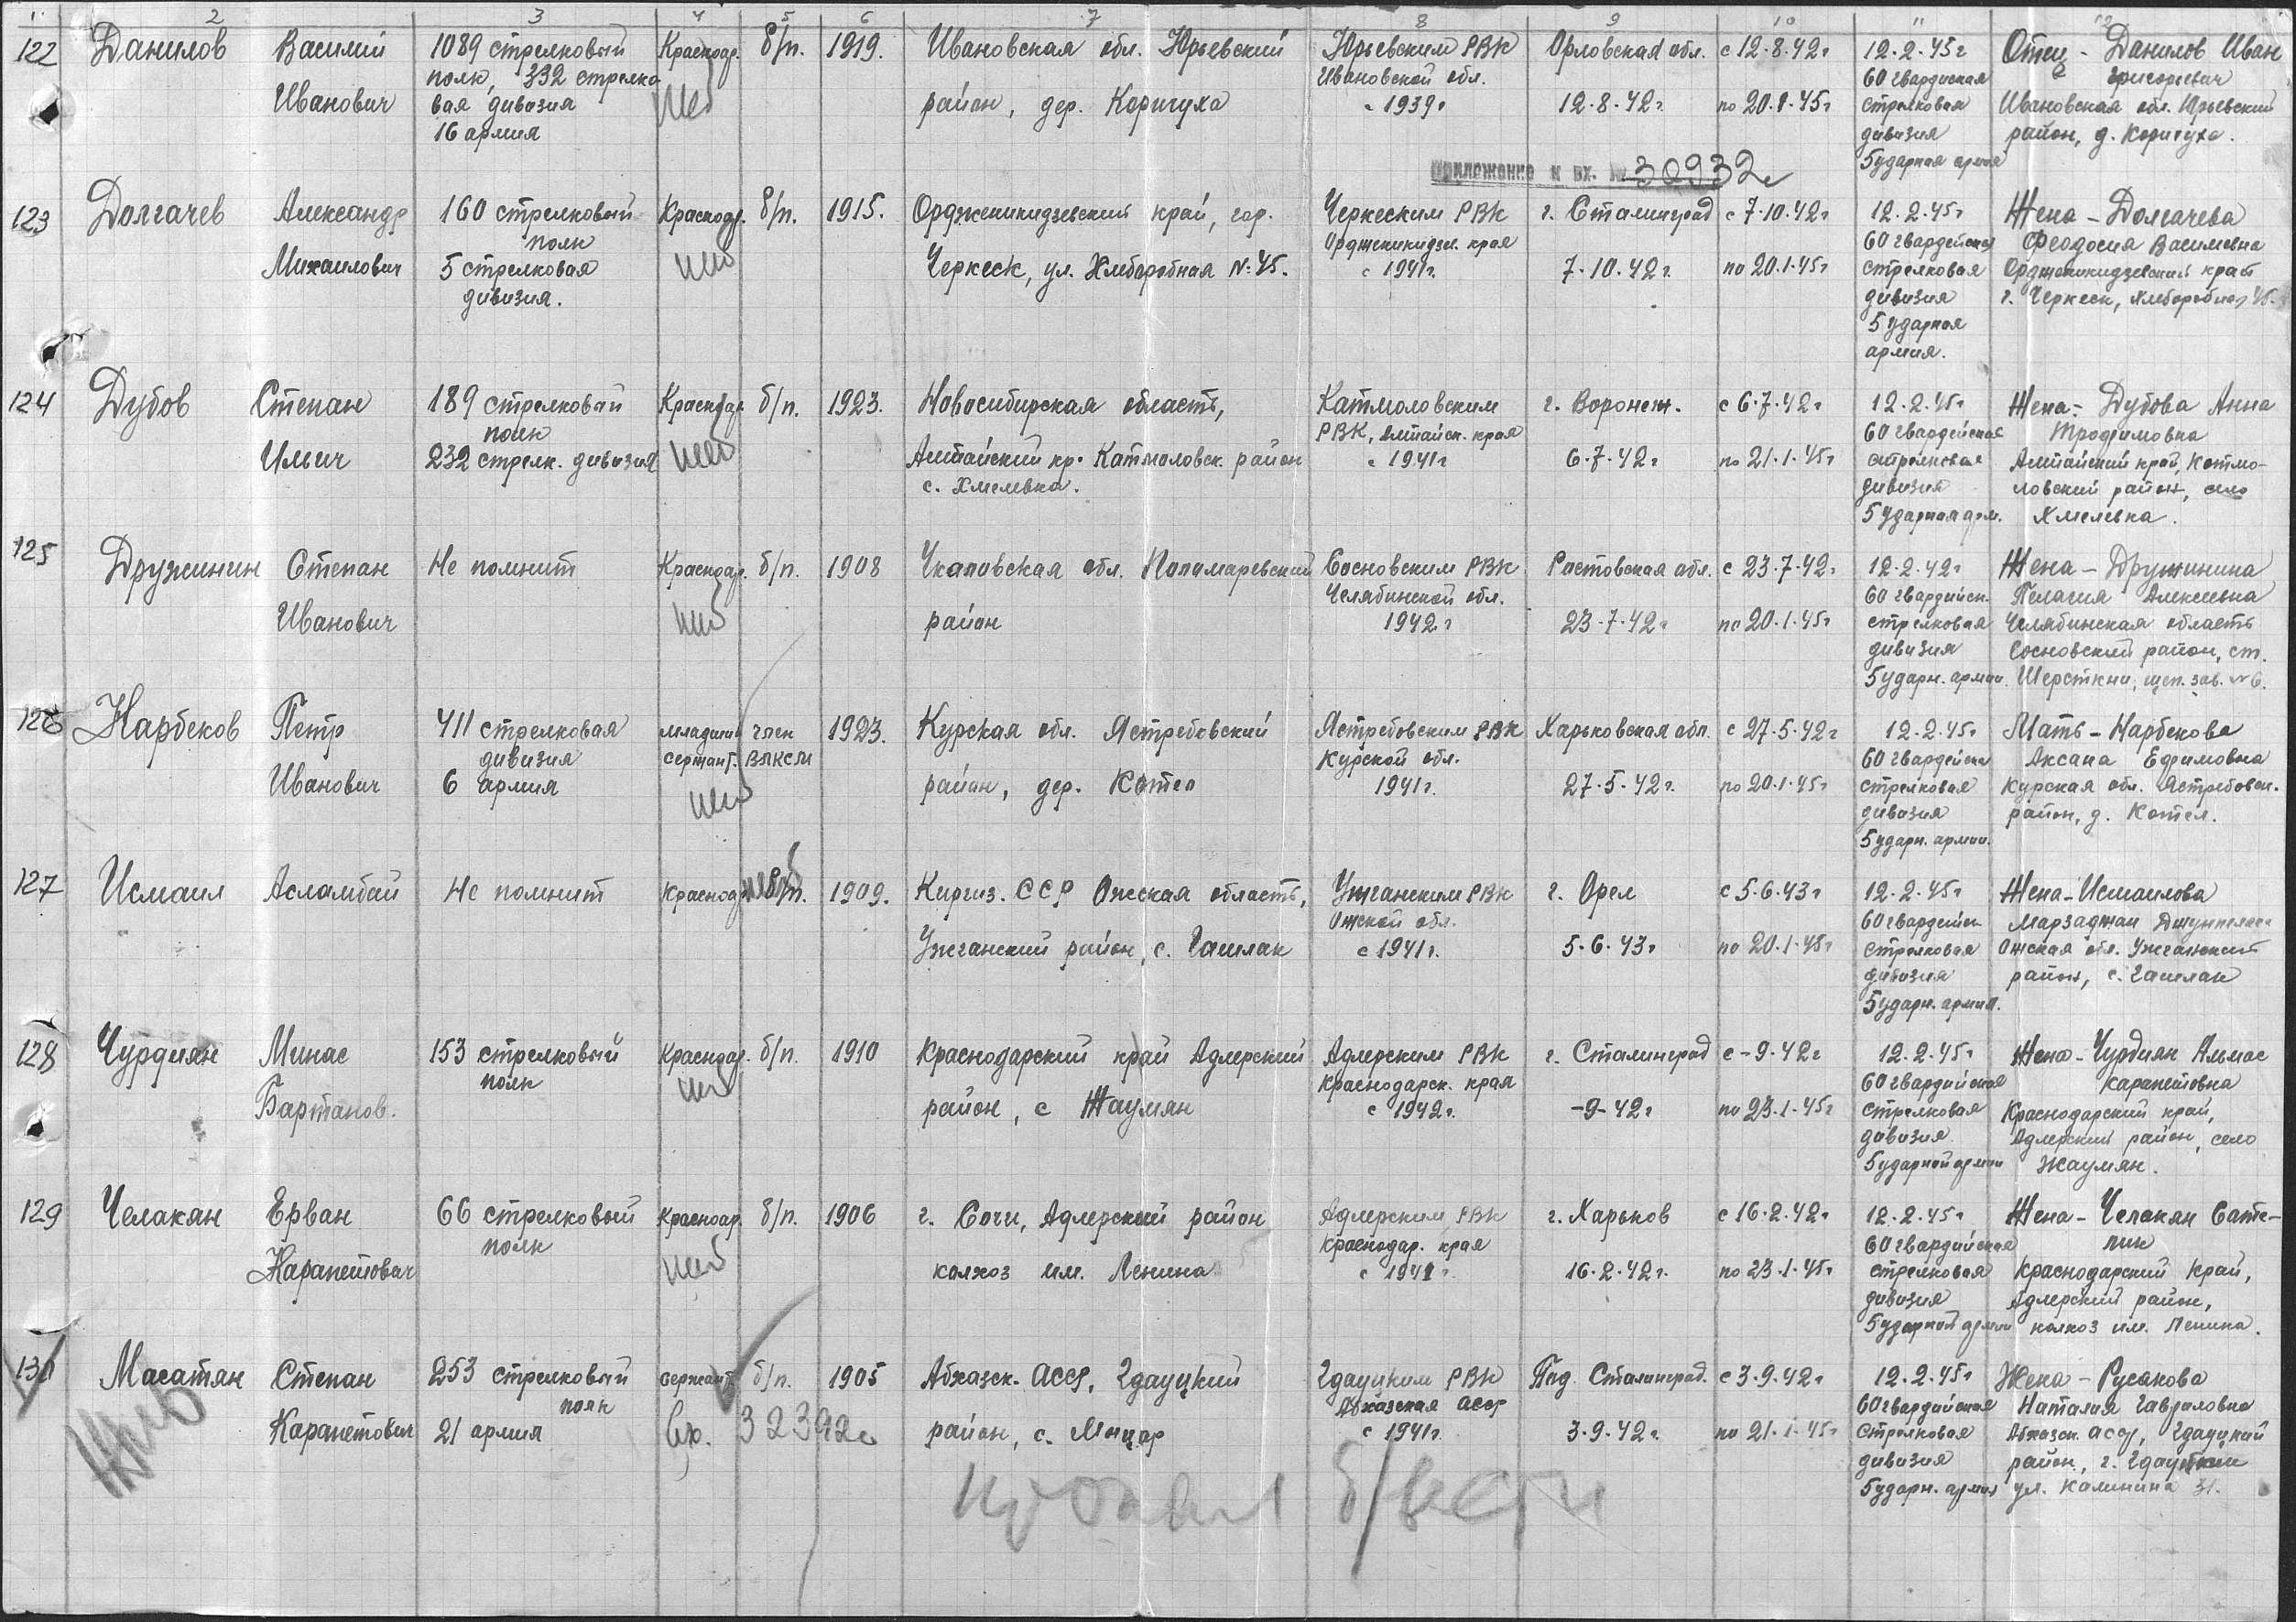 1 2 3 4 5 6 7 8 9 10 11 12
122 Данилов Василий 1089 стрелковый Краснодр. б/п. 1919. Ивановская обл. Юрьевский Юрьевским РВК Орловская обл. с 12.8.42г 12.2.45г Отец - Данилов Иван
полк, 332 стрелко Ивановской обл. 60 гвардиская Григорьевич
Иванович вая дивизия район, дер. Коричуха с 1939г 12.8.42г. по 20.1.45г стрелковая Ивановская обл. Юрьевский
16 армия дивизия район, д. Коричуха.
5 ударная армия
Приложение к вх. № 30932с
123 Долгачев Александр 160 стрелковый Краснодр. б/п. 1915. Орджоникидзевский край, гор. Черкеским РВК г. Сталинград с 7.10.42г 12.2.45г Жена - Долгачева
полк Орджоникидзе. края 60 гвардейская Феодосия Василевна
Михаилович 5 стрелковая Черкеск, ул. Хлеборобная №45. с 1941г. 7.10.42г. по 20.1.45г стрелковая Орджоникидзевский край
дивизия. дивизия г. Черкеск, Хлеборобная 45.
5 ударная
армия.
124 Дубов Степан 189 стрелковый Краснодр. б/п. 1923. Новосибирская область, Катмоловским г. Воронеж. с 6.7.42г 12.2.45г Жена - Дубова Анна
полк РВК, Алтайск. края 60 гвардейская Трофимовна
Ильич 232 стрелк. дивизия Алтайский кр. Катмоловск. район с 1941г 6.7.42г по 21.1.45г стрелковая Алтайский край, Катмо-
с. Хмелевка. дивизия ловский район, село
5 Ударная арм. Хмелевка.
125 Дружинин Степан Не помнит Краснодр. б/п. 1908 Чкаловская обл. Попамаревский Сосновским РВК Ростовская обл. с 23.7.42г 12.2.42г Жена - Дружинина
Челябинской обл. 60 гвардейск. Пелагия Алексеевна
Иванович район 1942г 23.7.42г по 20.1.45г стрелковая Челябинская область
дивизия Сосновский район, ст.
5 ударн. армии. Шерсткни, щеп. зав. №6.
126 Карбеков Петр 411 стрелковая младший член 1923. Курская обл. Ястребовский Ястребовским РВК Харьковская обл. с 27.5.42г 12.2.45г Мать - Карбекова
дивизия сержант. ВЛКСМ Курской обл. 60 гвардейская Аксана Ефимовна
Иванович 6 армия район, дер. Котел 1941г. 27.5.42г. по 20.1.45г стрелковая Курская обл. Ястребовск.
дивизия район, д. Котел.
5 ударн. армии.
127 Исмаил Асламбай Не помнит Краснодр б/п. 1909. Киргиз. ССР Ошская область, Ужганским РВК г. Орел с 5.6.43г 12.2.45г Жена - Исмаилова
Ошской обл. 60 гвардейск Марзаджан
Ужганский район, с. Гашлак с 1941г. 5.6.43г по 20.1.45г стрелковая Ошская обл. Ужганский
дивизия район, с. Гашлак
5 ударн. армии.
128 Чурдиян Минас 153 стрелковый Краснодр. б/п. 1910 Краснодарский край Адлерский Адлерским РВК г. Сталинград с -9.42г 12.2.45г Жена - Чурдиян Алмас
полк Краснодарск. края 60 гвардейская Карапетовна
Вартанов. район, с Жаумян с 1942г. -9-42г по 23.1.45г стрелковая Краснодарский край,
дивизия Адлерский район, село
5 ударной армии Жаумян.
129 Челакян Ерван 66 стрелковый Красноар. б/п. 1906 г. Сочи, Адлерский район Адлерским РВК г. Харьков с 16.2.42г 12.2.45г Жена - Челакян Сате-
полк Краснодар. края 60 гвардийская ник
Карапетович колхоз им. Ленина с 1941г. 16.2.42г. по 23.1.45г стрелковая Краснодарский край,
дивизия Адлерский район,
5 ударной армии колхоз им. Ленина.
130 Масатян Степан 253 стрелковый сержант б/п. 1905 Абхазск. АССР, Гдауцкий Гдауцким РВК Под Сталинград. с 3.9.42г 12.2.45г Жена - Русакова
полк Абхазская АССР 60 гвардийская Наталия Гавриловна
Карапетович 21 армия Вх. 32392с район, с. Мюцар с 1941г. 3.9.42г. по 21.1.45г стрелковая Абхазск. АССР, Гдауцкий
дивизия район, г. Гдаут
5 ударн. армия ул. Калинина 31.
жив
пропавл б/вести